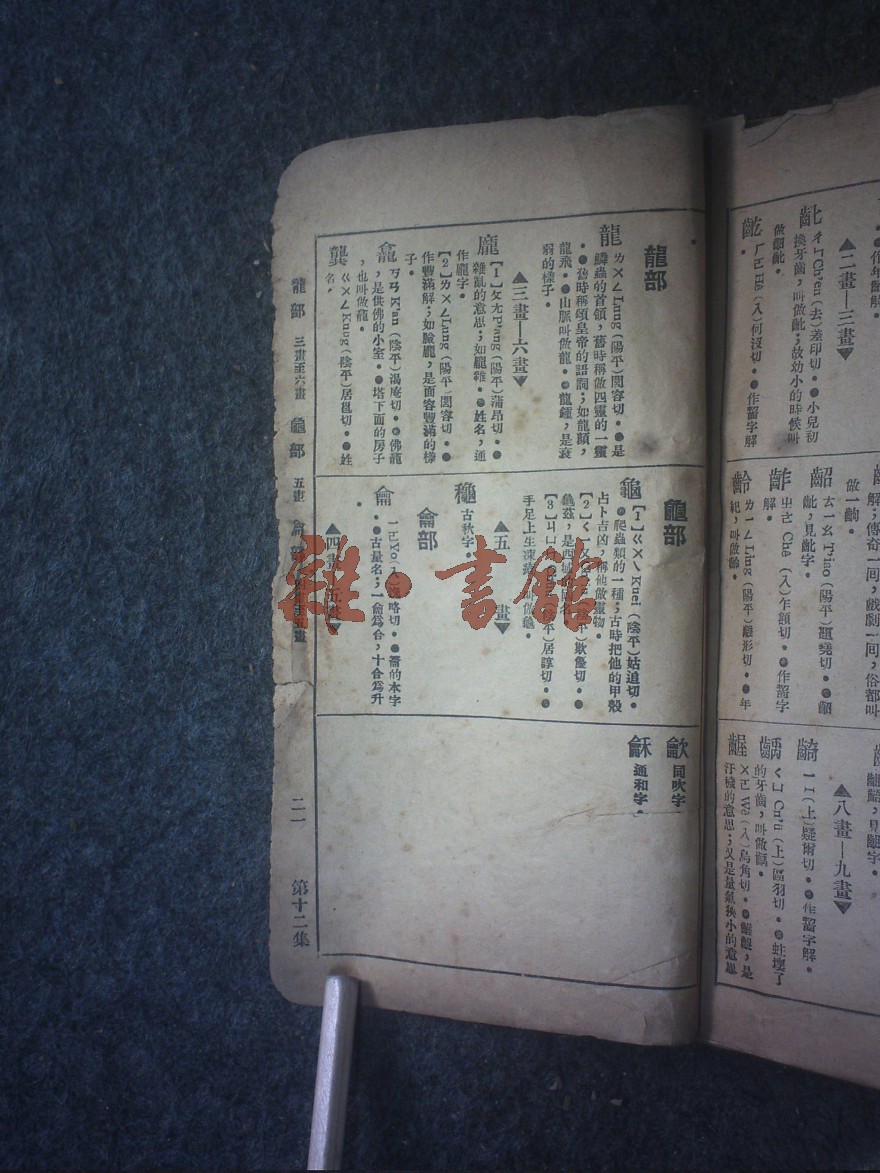 龍部
龍 ㄌㄨㄥLung(陽平)閭容切・●是
鱗蟲的首領,舊時稱做四靈的一靈
・●舊時稱頌皇帝的語詞;如龍顏,
龍飛・●山脈叫做龍・●龍鍾,是衰
弱的樣子・
▲三畫—六畫▼
龐【1】ㄆㄤP'ang(陽平)蒲昂切・●
雜亂的意思;如龐雜・●姓名,通
作龎字・
【2】ㄌㄨㄥLung(陽平)閭容切・●
作豐滿解;如臉龐,是面容豐滿的樣
子・
龕 ㄎㄢK'an(陰平)渴庵切・●佛龕
,是供佛的小室・●塔下面的房子
,也叫做龕・
龔 ㄍㄨㄥKung(陰平)居邕切・●姓
名・
龜部
龜【1】ㄍㄨㄟKuei(陰平)姑追切・
●爬蟲類的一種;古時把他的甲殼
占卜吉凶,稱他做靈物・
龜茲,是西域的國名・
手足上生凍瘡,叫做龜・
▲五 畫▼
龝 古秋字・
龠部
龠 ㄧㄛYo(入)弋略切・●籥的本字
・●古量名;一龠爲合,十合爲升
龡 同吹字・
龢 通和字・
龍部 三畫至六畫 龜部 五畫 龠部
二一 第十二集
雜・書館
・●作年齡解・
▲二畫—三畫▼
齔 ㄔㄣCh'ên(去)差印切・●小兒初
換牙齒,叫做齔;故幼小的時候叫
做齠齔・
齕 ㄏㄜHê(入)何沒切・●作齧字解
解;傳奇一回,戲劇一回,俗都叫
做一齣・
齠 ㄊㄧㄠT'iao(陽平)題堯切・●齠
齔,見齔字・
齚 ㄓㄜChê(入)乍額切・●作齧字
解・
齡 ㄌㄧㄥLing(陽平)離形切・●年
紀,叫做齡・
▲八畫—九畫▼
齮 ㄧI(上)疑爾切・●作齧字解・
齲 ㄑㄩCh'ü(上)區羽切・●蛀壞了
的牙齒,叫做齲・
齷 ㄨㄛWo(入)烏角切・●齷齪,是
汙穢的意思;又是量氣狹小的意思